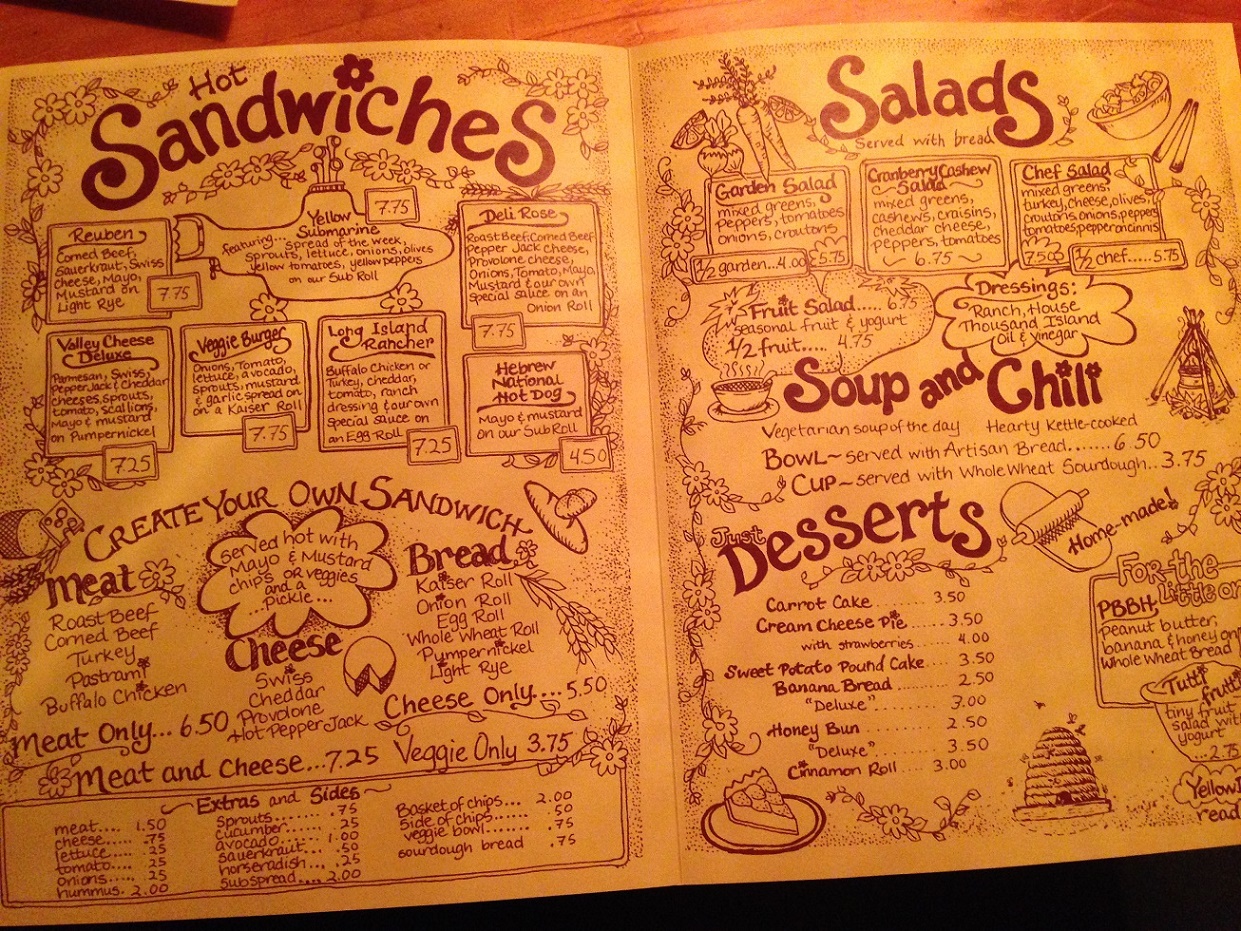 Hot
Sandwiches
Reuben
Corned Beef,
Sauerkraut, Swiss
Cheese, Mayo,
Mustard on
Light Rye
7.75
Yellow
Submarine
7.75
featuring...
spread of the week,
sprouts, lettuce, onions, olives
yellow tomatoes, yellow peppers
on our Sub Roll
Deli Rose
Roast Beef, Corned Beef
Pepper Jack Cheese,
Provolone cheese,
Onions, Tomato, Mayo,
Mustard & our own
special sauce on an
Onion Roll
7.75
Valley Cheese
Deluxe
Parmesan, Swiss,
Pepper Jack & Cheddar
cheeses, sprouts,
tomato, scallions,
Mayo & mustard
on Pumpernickel
7.25
Veggie Burger
Onions, Tomato,
lettuce, avocado,
sprouts, mustard
& garlic spread on
on a Kaiser Roll
7.75
Long Island
Rancher
Buffalo Chicken or
Turkey, cheddar,
tomato, ranch
dressing & our own
special sauce on
an Egg Roll
7.25
Hebrew
National
Hot Dog
Mayo & mustard
on our Sub Roll
4.50
Create Your Own Sandwich
served hot with
Mayo & Mustard
chips or veggies
and a
...pickle...
Meat
Roast Beef
Corned Beef
Turkey
Pastrami
Buffalo Chicken
Cheese
Swiss
Cheddar
Provolone
Hot Pepper Jack
Bread
Kaiser Roll
Onion Roll
Egg Roll
Whole Wheat Roll
Pumpernickel
Light Rye
Meat Only... 6.50
Cheese Only.... 5.50
Meat and Cheese...7.25
Veggie Only 3.75
Extras and Sides
meat.... 1.50
cheese.... .75
lettuce.... .25
tomato.... .25
onions.... .25
hummus. 2.00
sprouts...... .75
cucumber..... .25
avocado..... 1.00
sauerkraut... .50
horseradish... .25
sub spread.... 2.00
Basket of chips... 2.00
side of chips..... .50
veggie bowl...... .75
sourdough bread .75
Salads
Served with bread
Garden Salad
mixed greens,
peppers, tomatoes
onions, croutons
5.75
1/2 garden...4.00
Cranberry Cashew
Salad
mixed greens,
cashews, craisins,
cheddar cheese,
peppers, tomatoes
6.75
Chef Salad
mixed greens,
turkey, cheese, olives,
croutons, onions, peppers
tomatoes, pepperoncinnis
7.50
1/2 chef..... 5.75
Fruit Salad..... 6.75
seasonal fruit & yogurt
1/2 fruit..... 4.75
Dressings:
Ranch, House
Thousand Island
Oil & Vinegar
Soup and Chili
Vegetarian soup of the day Hearty Kettle-cooked
Bowl~ served with Artisan Bread....... 6.50
Cup~ served with Whole Wheat Sourdough.. 3.75
Just
Desserts
Home-made!
Carrot Cake........ 3.50
Cream Cheese Pie..... 3.50
with strawberries....... 4.00
Sweet Potato Pound Cake.... 3.50
Banana Bread.......... 2.50
"Deluxe"............ 3.00
Honey Bun........... 2.50
"Deluxe"........... 3.50
Cinnamon Roll.... 3.00
For the
Little on
PBBH,
peanut butter,
banana & honey on
Whole Wheat Bread
Tutti
frutti
tiny fruit
salad wit
yogurt
...2.75
Yellow
read